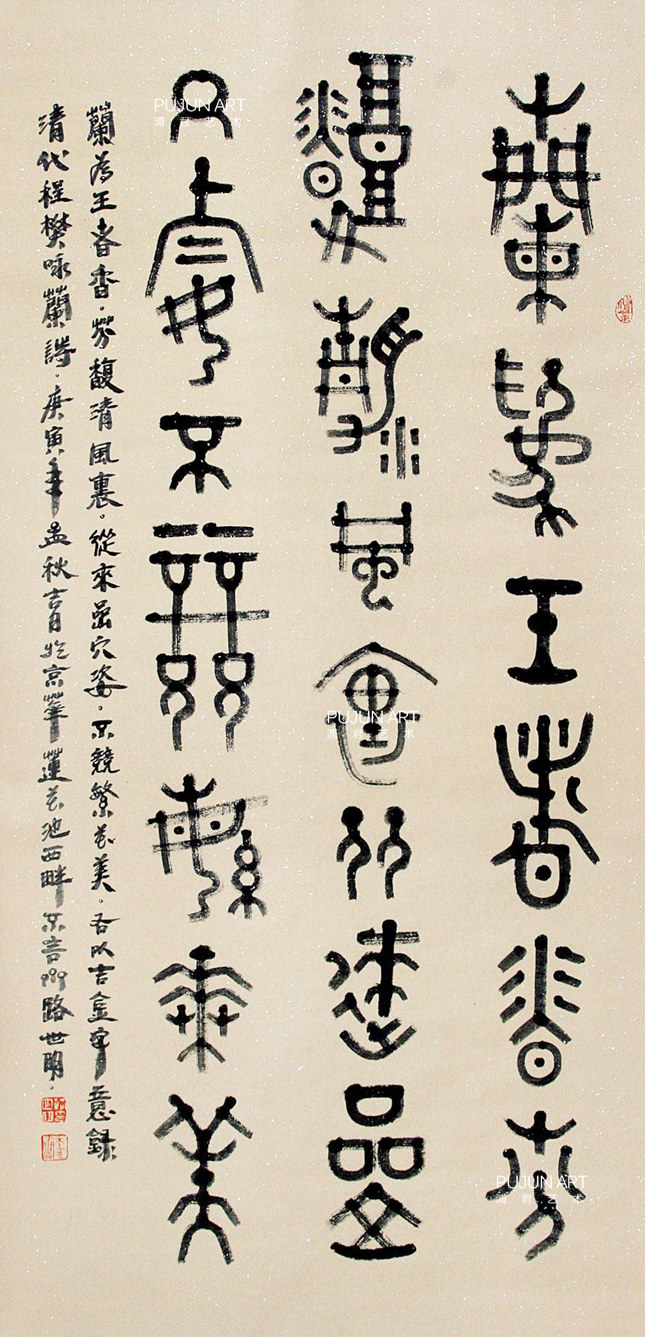 蘭為王者香芬
馥清風裏从來嵒
穴姿不競繁華美
蘭為王者香。芬馥清風裏。從來嵒穴姿。不競繁花美。吾以吉金字意錄
清代程樊咏蘭詩。庚寅年孟秋吉月於京華蓮花池西畔不路世明。
PUJUN ART
浦君艺术
PUJUN ART
浦君艺术
PUJUN ART
浦君艺术